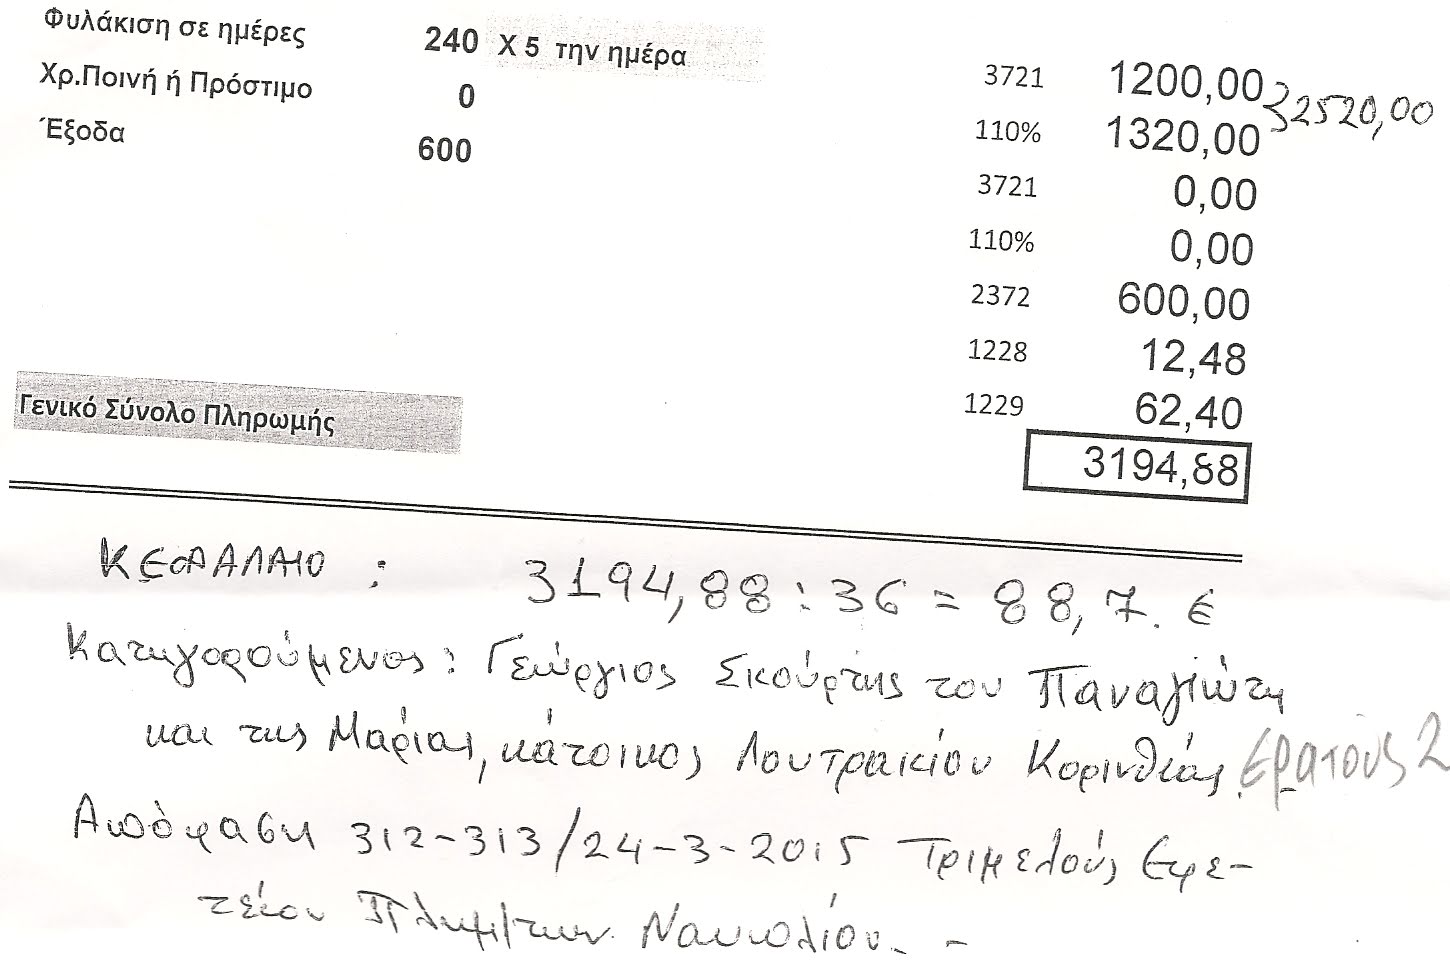 Φυλάκιση σε ημέρες 240 Χ 5 την ημέρα 3721 1200,00
Χρ.Ποινή ή Πρόστιμο 0 110% 1320,00 2520,00
Έξοδα 600 3721 0,00
110% 0,00
2372 600,00
1228 12,48
1229 62,40
Γενικό Σύνολο Πληρωμής 3194,88
ΚΕΦΑΛΑΙΟ : 3194,88 : 36 = 88,7. €
Κατηγορούμενος: Γεώργιος Σκούρτης του Παναγιώτη
και της Μαρίας, κάτοικος Λουτρακίου Κορινθίας, Ερατούς 2
Απόφαση 312-313/24-3-2015 Τριμελούς Εφε-
τείου Πλημ/των Ναυπλίου. -